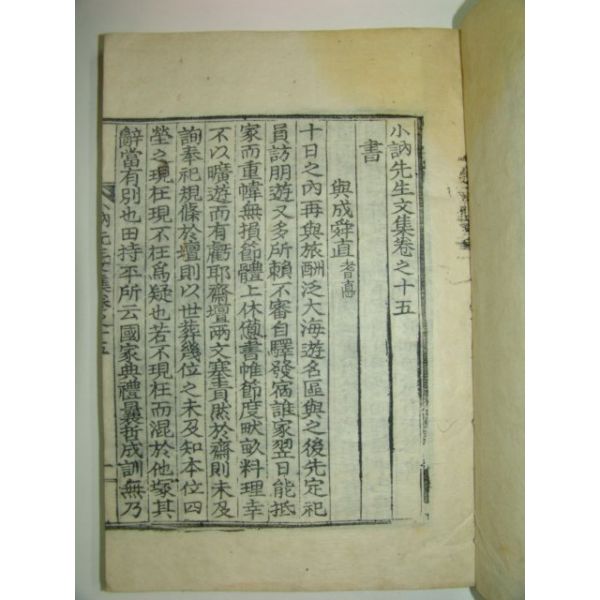 小訥先生文集卷之十五
書
與成舜直 耆悳
十日之內再與旅酬泛大海遊名區與之後先定祀
員訪朋遊又多所賴不審自驛發宿誰家翌日能抵
家而重幃無損節體上休憊書帷節度畎畝料理幸
不以曠遊而有虧耶齋壇兩文塞責然於齋則未及
詢奉祀規條於壇則以世葬幾位之未及知本位四
塋之現在現不在爲疑也若不現在而混於他塚其
辭當有別也田持平所云國家典禮曩哲成訓無乃
小訥先生文集卷之十五